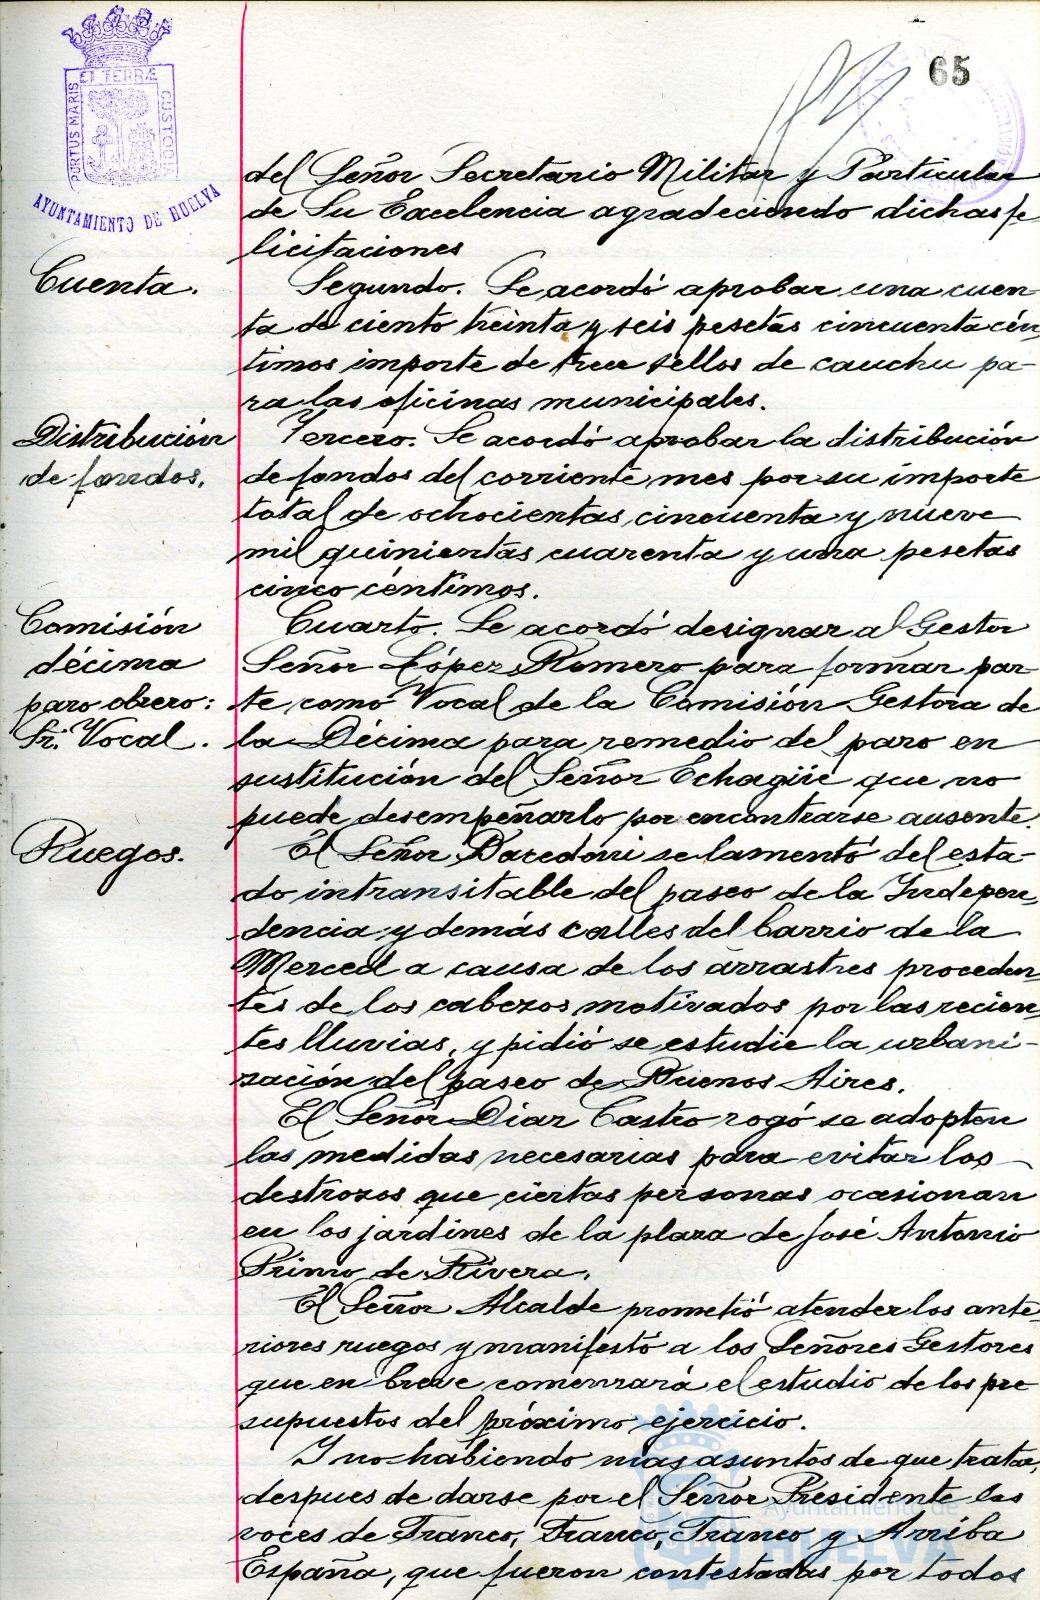 65
ET TERRÆ
PORTUS MARIS
CUSTODIA
AYUNTAMIENTO DE HUELVA
del Señor Secretario Militar y Particular
de Su Excelencia agradeciendo dichas fe
licitaciones
Cuenta.
Segundo. Se acordó aprobar una cuen-
ta de ciento treinta y seis pesetas cincuenta cén
timos importe de trece sellos de cauchu pa-
ra las oficinas municipales.
Distribución
de fondos.
Tercero. Se acordó aprobar la distribución
de fondos del corriente mes por su importe
total de ochocientas cincuenta y nueve
mil quinientas cuarenta y una pesetas
cinco céntimos.
Comisión
décima
paro obrero:
Sr. Vocal.
Cuarto. Se acordó designar al Gestor
Señor López Romero para formar par-
te como Vocal de la Comisión Gestora de
la Décima para remedio del paro en
sustitución del Señor Echagüe que no
puede desempeñarlo por encontrarse ausente.
Ruegos.
El Señor se lamentó del esta-
do intransitable del paseo de la Indepen-
dencia y demás calles del barrio de la
Merced a causa de los arrastres proceden-
tes de los cabezos motivados por las recien-
tes lluvias, y pidió se estudie la urbani-
zación del paseo de Buenos Aires.
El Señor Diaz Castro rogó se adopten
las medidas necesarias para evitar los
destrozos que ciertas personas ocasionan
en los jardines de la plaza de José Antonio
Primo de Rivera.
El Señor Alcalde prometió atender los ante-
riores ruegos y manifestó a los Señores Gestores
que en breve comenzará el estudio de los pre
supuestos del próximo ejercicio.
Y no habiendo mas asuntos de que tratar,
despues de darse por el Señor Presidente las
voces de Franco, Franco, Franco y Arriba
España, que fueron contestadas por todos
Ayuntamiento de
HUELVA